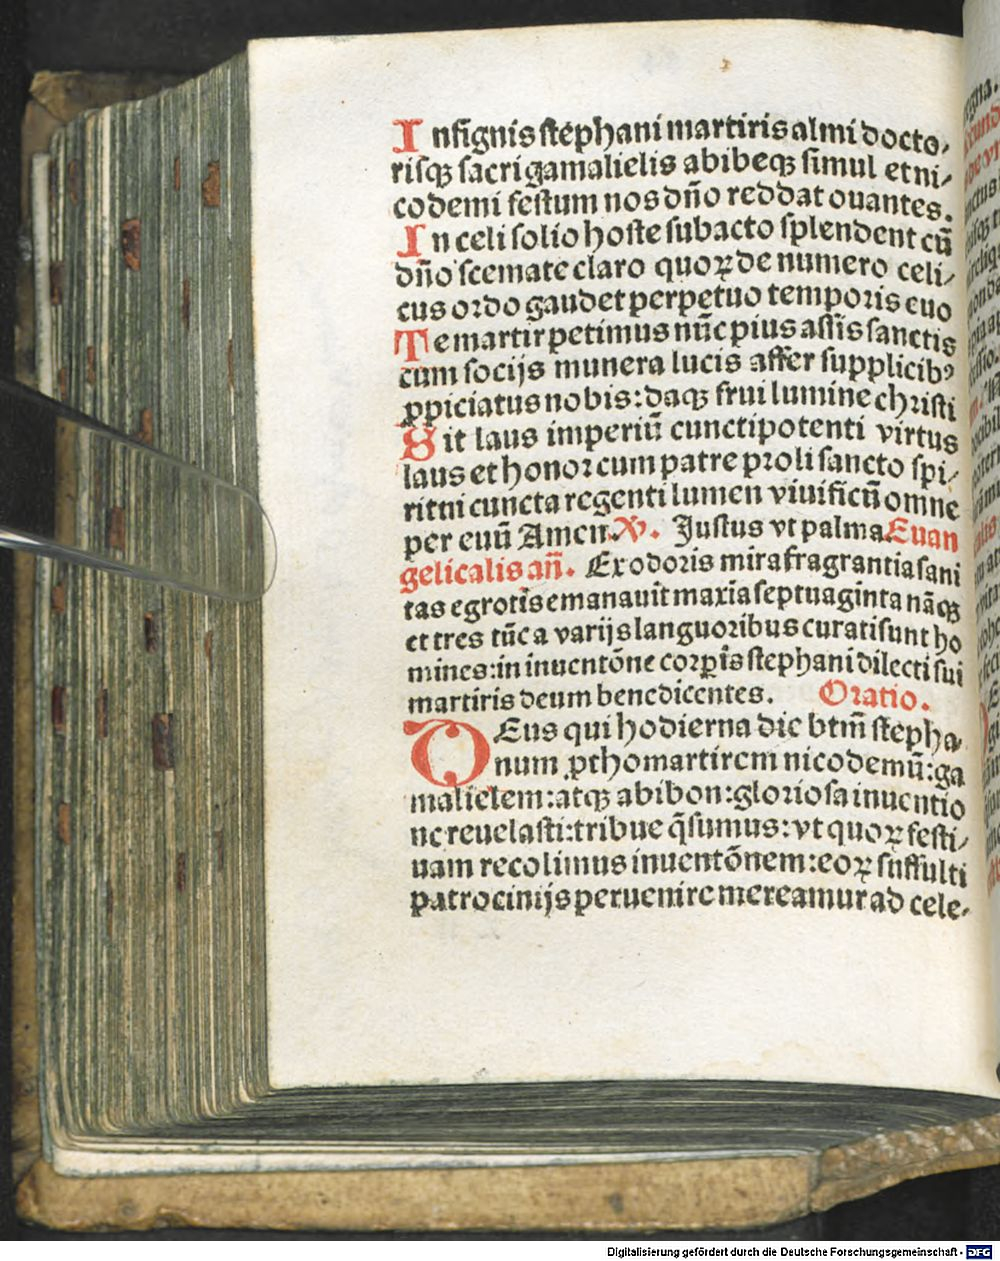 Insignis stephani martiris almi docto⸗
risqꝫ sacri gamalielis abibeqꝫ simul et ni⸗
codemi festum nos dño reddat ouantes.
In celi solio hoste subacto splendent cū
dño scemate claro quoꝝ de numero celi⸗
cus ordo gaudet perpetuo temporis euo
Te martir petimus nūc pius assis sanctis
cum socijs munera lucis affer supplicibꝰ
ꝓpiciatus nobis: daqꝫ frui lumine christi
Sit laus imperiū cunctipotenti virtus
laus et honor cum patre proli sancto spi⸗
ritni cuncta regenti lumen viuificū omne
per euū Amen. ℣. Justus vt palma Euan
gelicalis añ. Ex odoris mira fragrantia sani
tas egrotis emanauit maxīa septuaginta nāqꝫ
et tres tūc a varijs languoribus curati sunt ho
mines: in inuentōne corꝑis stephani dilecti sui
martiris deum benedicentes. Oratio.
DEus qui hodierna die btm̄ stepha⸗
num ꝓthomartirem nicodemū: ga
malielem: atqꝫ abibon: gloriosa inuentio
ne reuelasti: tribue q̄sumus: vt quoꝝ festi⸗
uam recolimus inuentōnem: eoꝝ suffulti
patrocinijs peruenire mereamur ad cele⸗
Digitalisierung gefördert durch die Deutsche Forschungsgemeinschaft - DFG